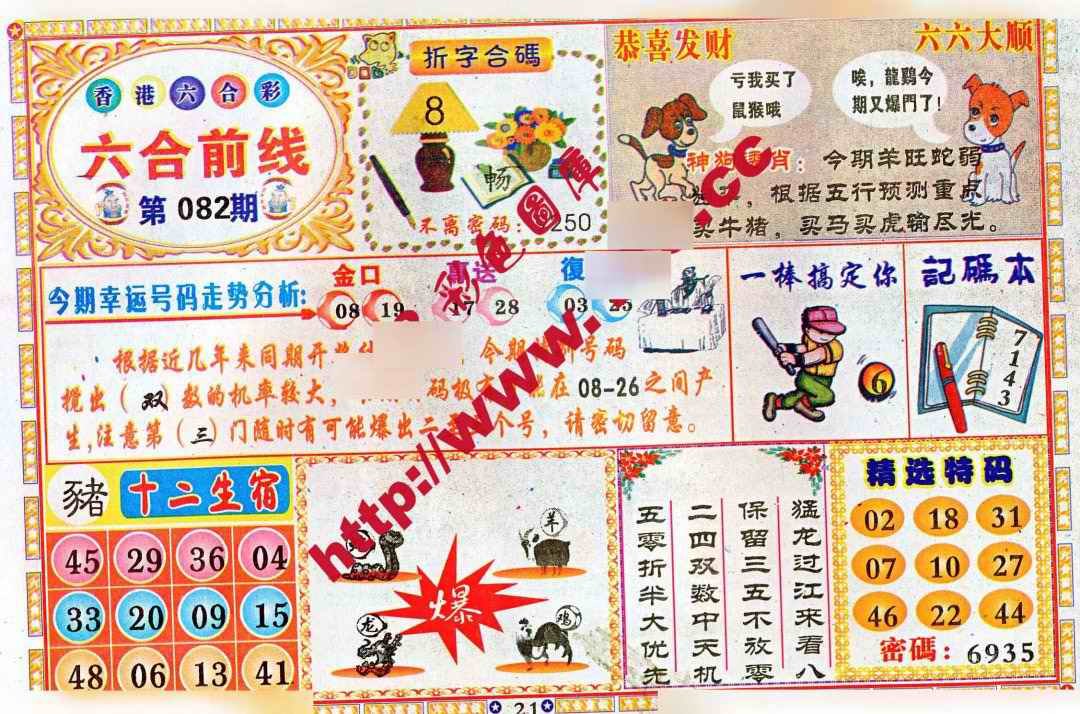 香港六合彩
六合前线
第082期
折字合碼
8
畅
不离密码：
250
恭喜发财
六六大顺
亏我买了
鼠猴哦
唉，龍鷄今
期又爆門了！
神狗
肖：今期羊旺蛇弱
，根据五行预测重点
买牛猪，买马买虎输尽光。
今期幸运号码走势分析：
金口
08 19
送
17 28
復
03 25
根据近几年来同期开
今期
号码
搅出（双）数的机率较大，
码极
在08-26之间产
生，注意第（三）门随时有可能爆出二
个号，请密切留意。
一棒搞定你
6
記碼本
7143
豬
十二生宿
45 29 36 04
33 20 09 15
48 06 13 41
羊
爆
龙
鸡
猛龙过江来看八
保留三五不放零
二四双数中天机
五零折半大优先
精选特码
02 18 31
07 10 27
46 22 44
密碼：6935
彩色圖庫
http://www.
.cc
21